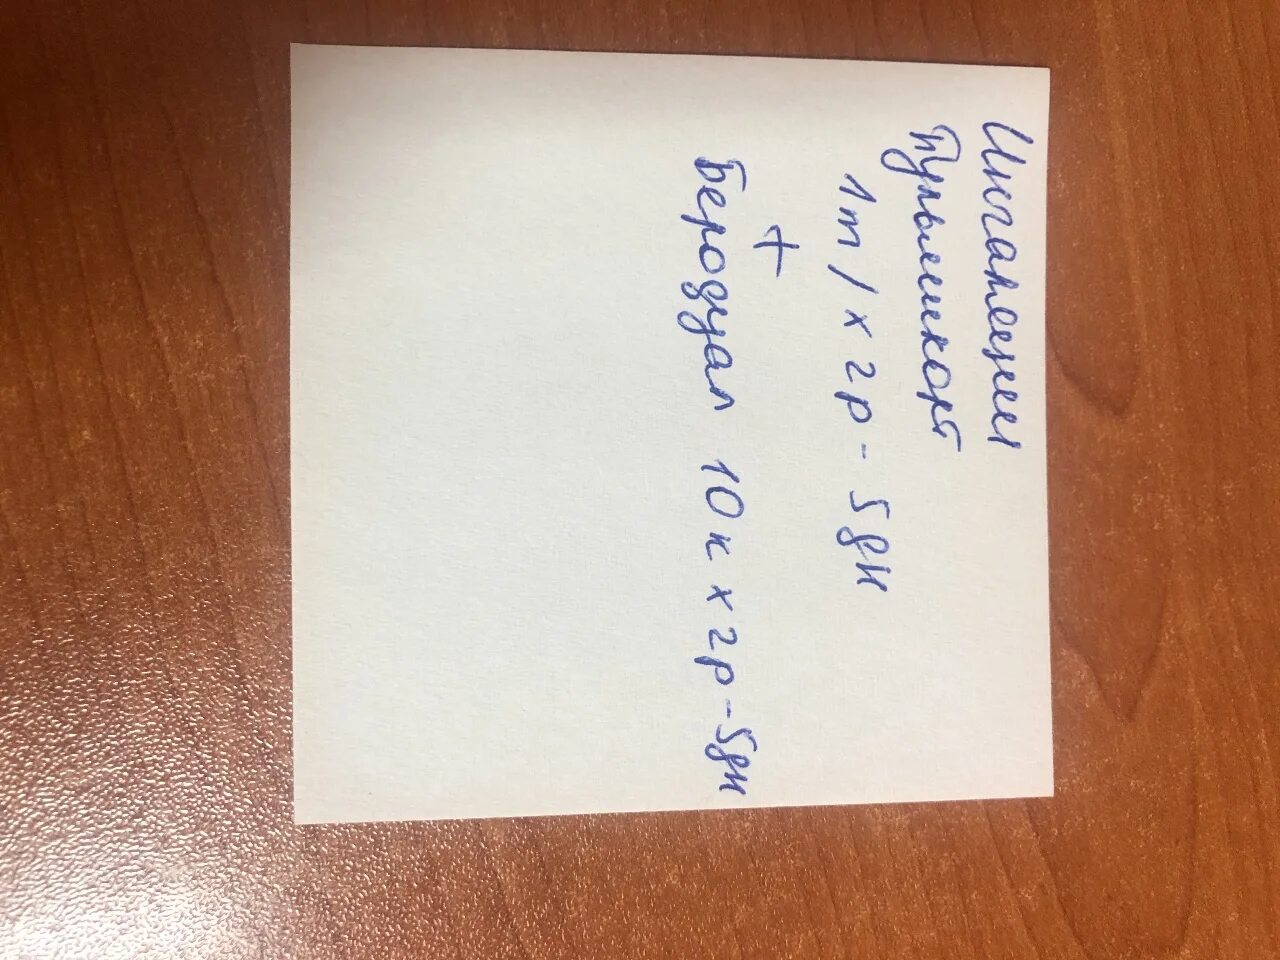 Ингаляции
Пульмикорт
1m/ х 2р - 5дн
+
Беродуал 10к х 2р - 5дн